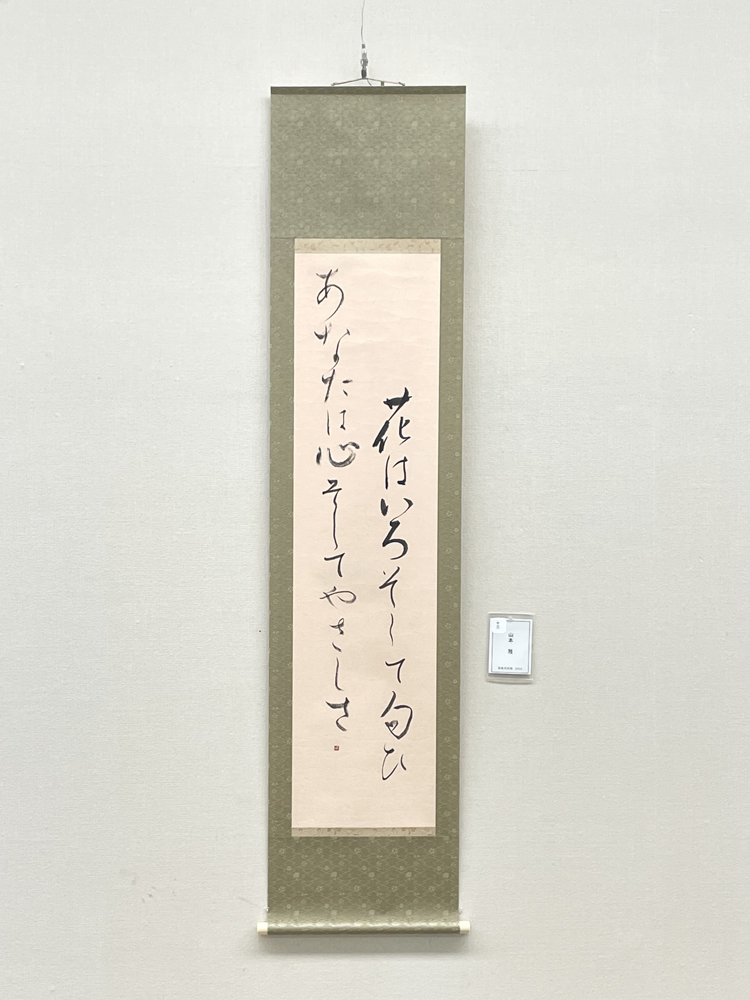 花はいろそして匂ひ
あなたは心そしてやさしさ
山本 雅